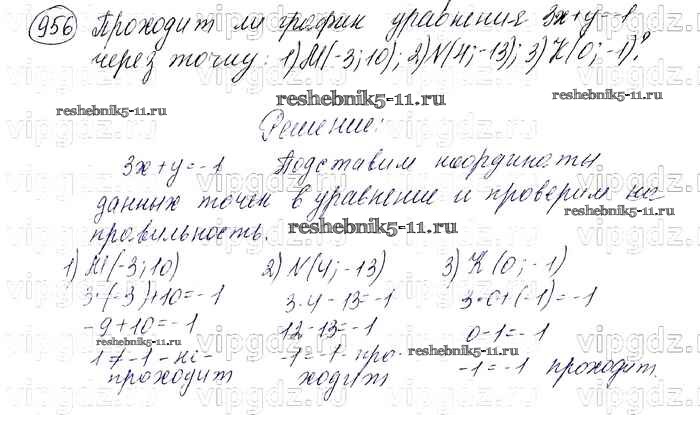 956 Проходит ли график уравнения 3x+y=-1
через точку: 1) M(-3; 10); 2) N(4; -13); 3) K(0; -1)?
reshebnik5-11.ru
reshebnik5-11.ru
reshebnik5-11.ru
Решение:
3x+y=-1 Подставим координаты
данных точек в уравнение и проверим на
reshebnik5-11.ru
правильность.
reshebnik5-11.ru
1) M(-3; 10) 2) N(4; -13) 3) K(0; -1)
3·(-3)+10=-1 3·4-13=-1 3·0+(-1)=-1
-9+10=-1 12-13=-1 0-1=-1
1≠-1 - не -1=-1 - про- -1=-1 проходит.
проходит ходит
reshebnik5-11.ru
reshebnik5-11.ru
reshebnik5-11.ru